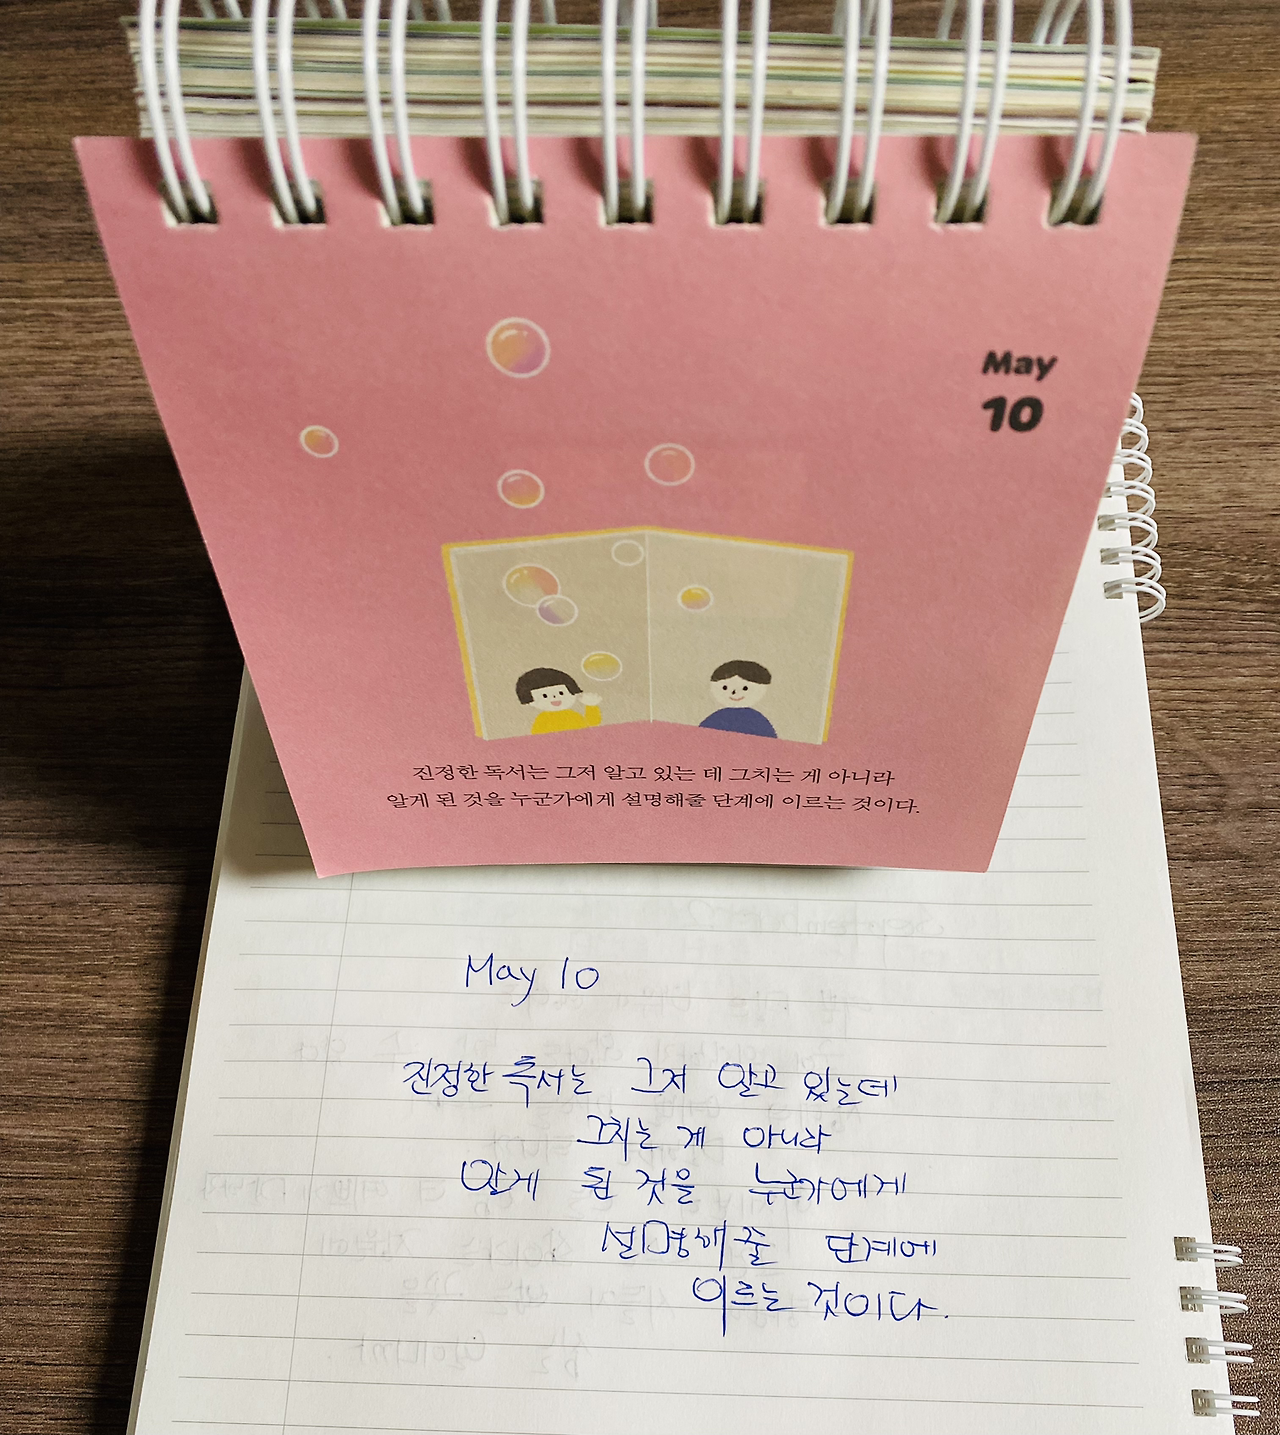 May
10
진정한 독서는 그저 알고 있는 데 그치는 게 아니라
알게 된 것을 누군가에게 설명해줄 단계에 이르는 것이다.
May 10
진정한 독서는 그저 알고 있는데
그치는 게 아니라
알게 된 것을 누군가에게
설명해 줄 단계에
이르는 것이다.